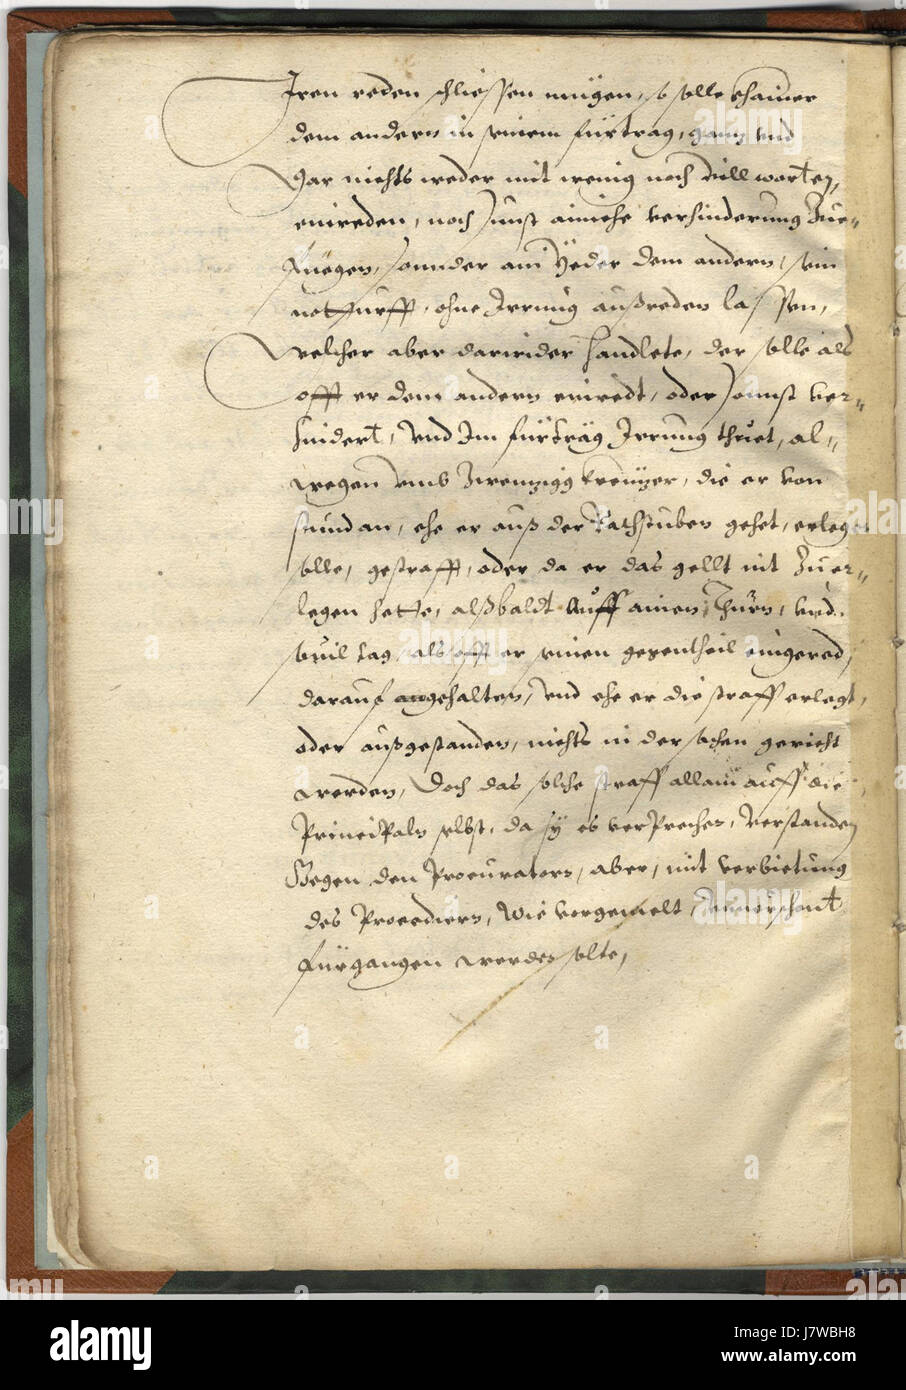 Iren reden schliessen mügen, so solle khainer
dem andern in seinem fürtrag, ganz vnd
Gar nichts weder mit wenig noch vill worten,
einreden, noch sunst ainiche verhinderung Zue-
fuegen, sonnder ain Yeder dem andern, sein
notturfft, ohne Irrung außreden lassen,
Welcher aber darwider handlete, der solle als
offt er dem andern einredt, oder sonnst ver-
hindert, vnd Im fürtrag Irrung thuet, al-
wegen vmb Zwenzigg Kreuzer, die er von
stund an, ehe er auß der Rathstuben gehet, erlegen
solle, gestrafft, oder da er das gellt nit Zu er-
legen hette, alßbaldt auff ainen Thurn, vnd
souil tag als offt er seinen gegentheil eingeredt,
darauf gehalten, vnd ehe er die straff erlegt,
oder außgestanden, nichts in der sachen gericht
werden, Doch das solche straff allain auff die
Principaln selbst, da sy es verprechen, Verstanden
Gegen den Procuratorn, aber, mit verbietung
des Procedierns, Wie vorgemelt,
fürgangen werden solte,
alamy
Image ID: J7WBH8
www.alamy.com